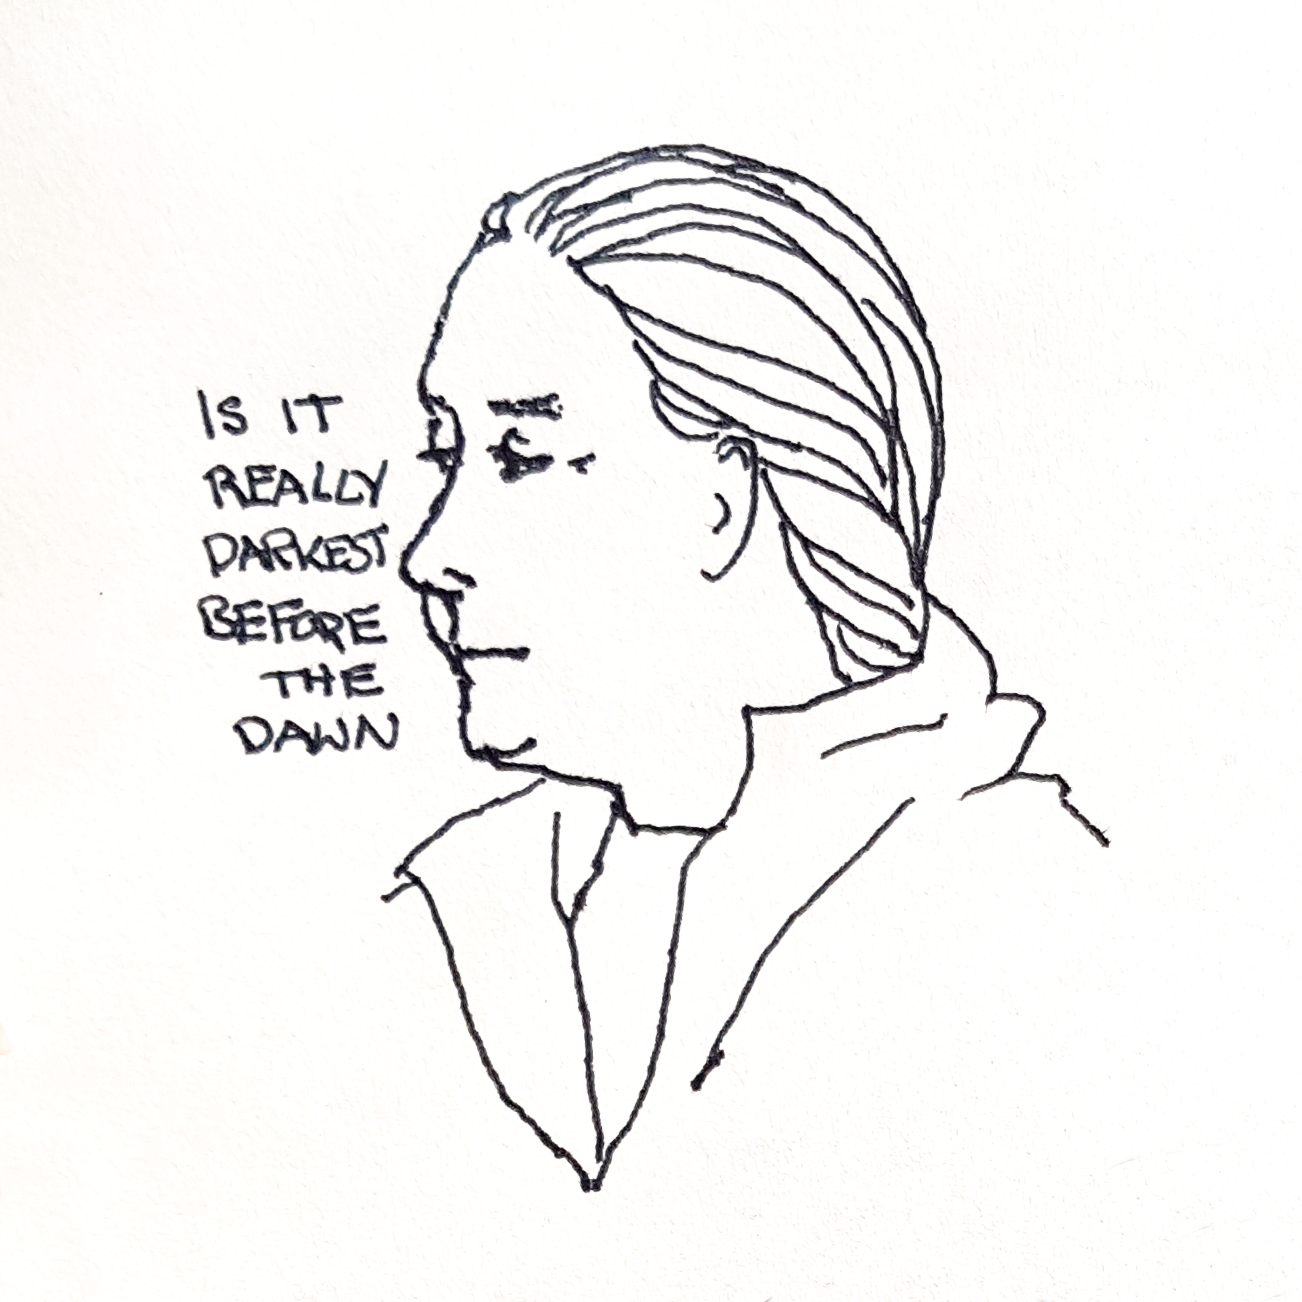 IS IT
REALLY
DARKEST
BEFORE
THE
DAWN